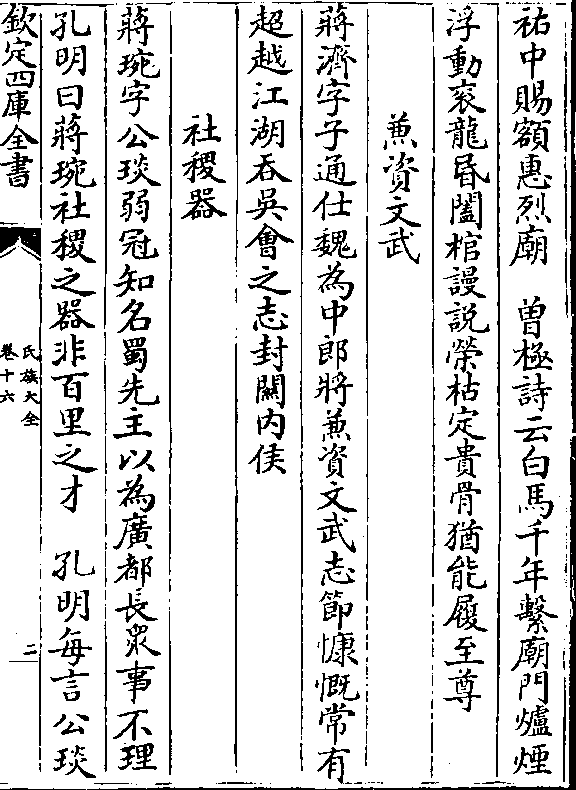 祐中賜額惠烈廟　曽極詩云白馬千年繫廟門爐煙
浮動衮龍昏闔棺謾説榮枯定貴骨猶能履至尊
兼資文武
蔣濟字子通仕魏為中郎將兼資文武志節慷慨常有
超越江湖吞吳會之志封關内侯
社稷器
蔣琬字公琰弱冠知名蜀先主以為廣都長衆事不理
孔明曰蔣琬社稷之器非百里之才　孔明每言公琰
欽定四庫全書
氏族大全
卷十六
二